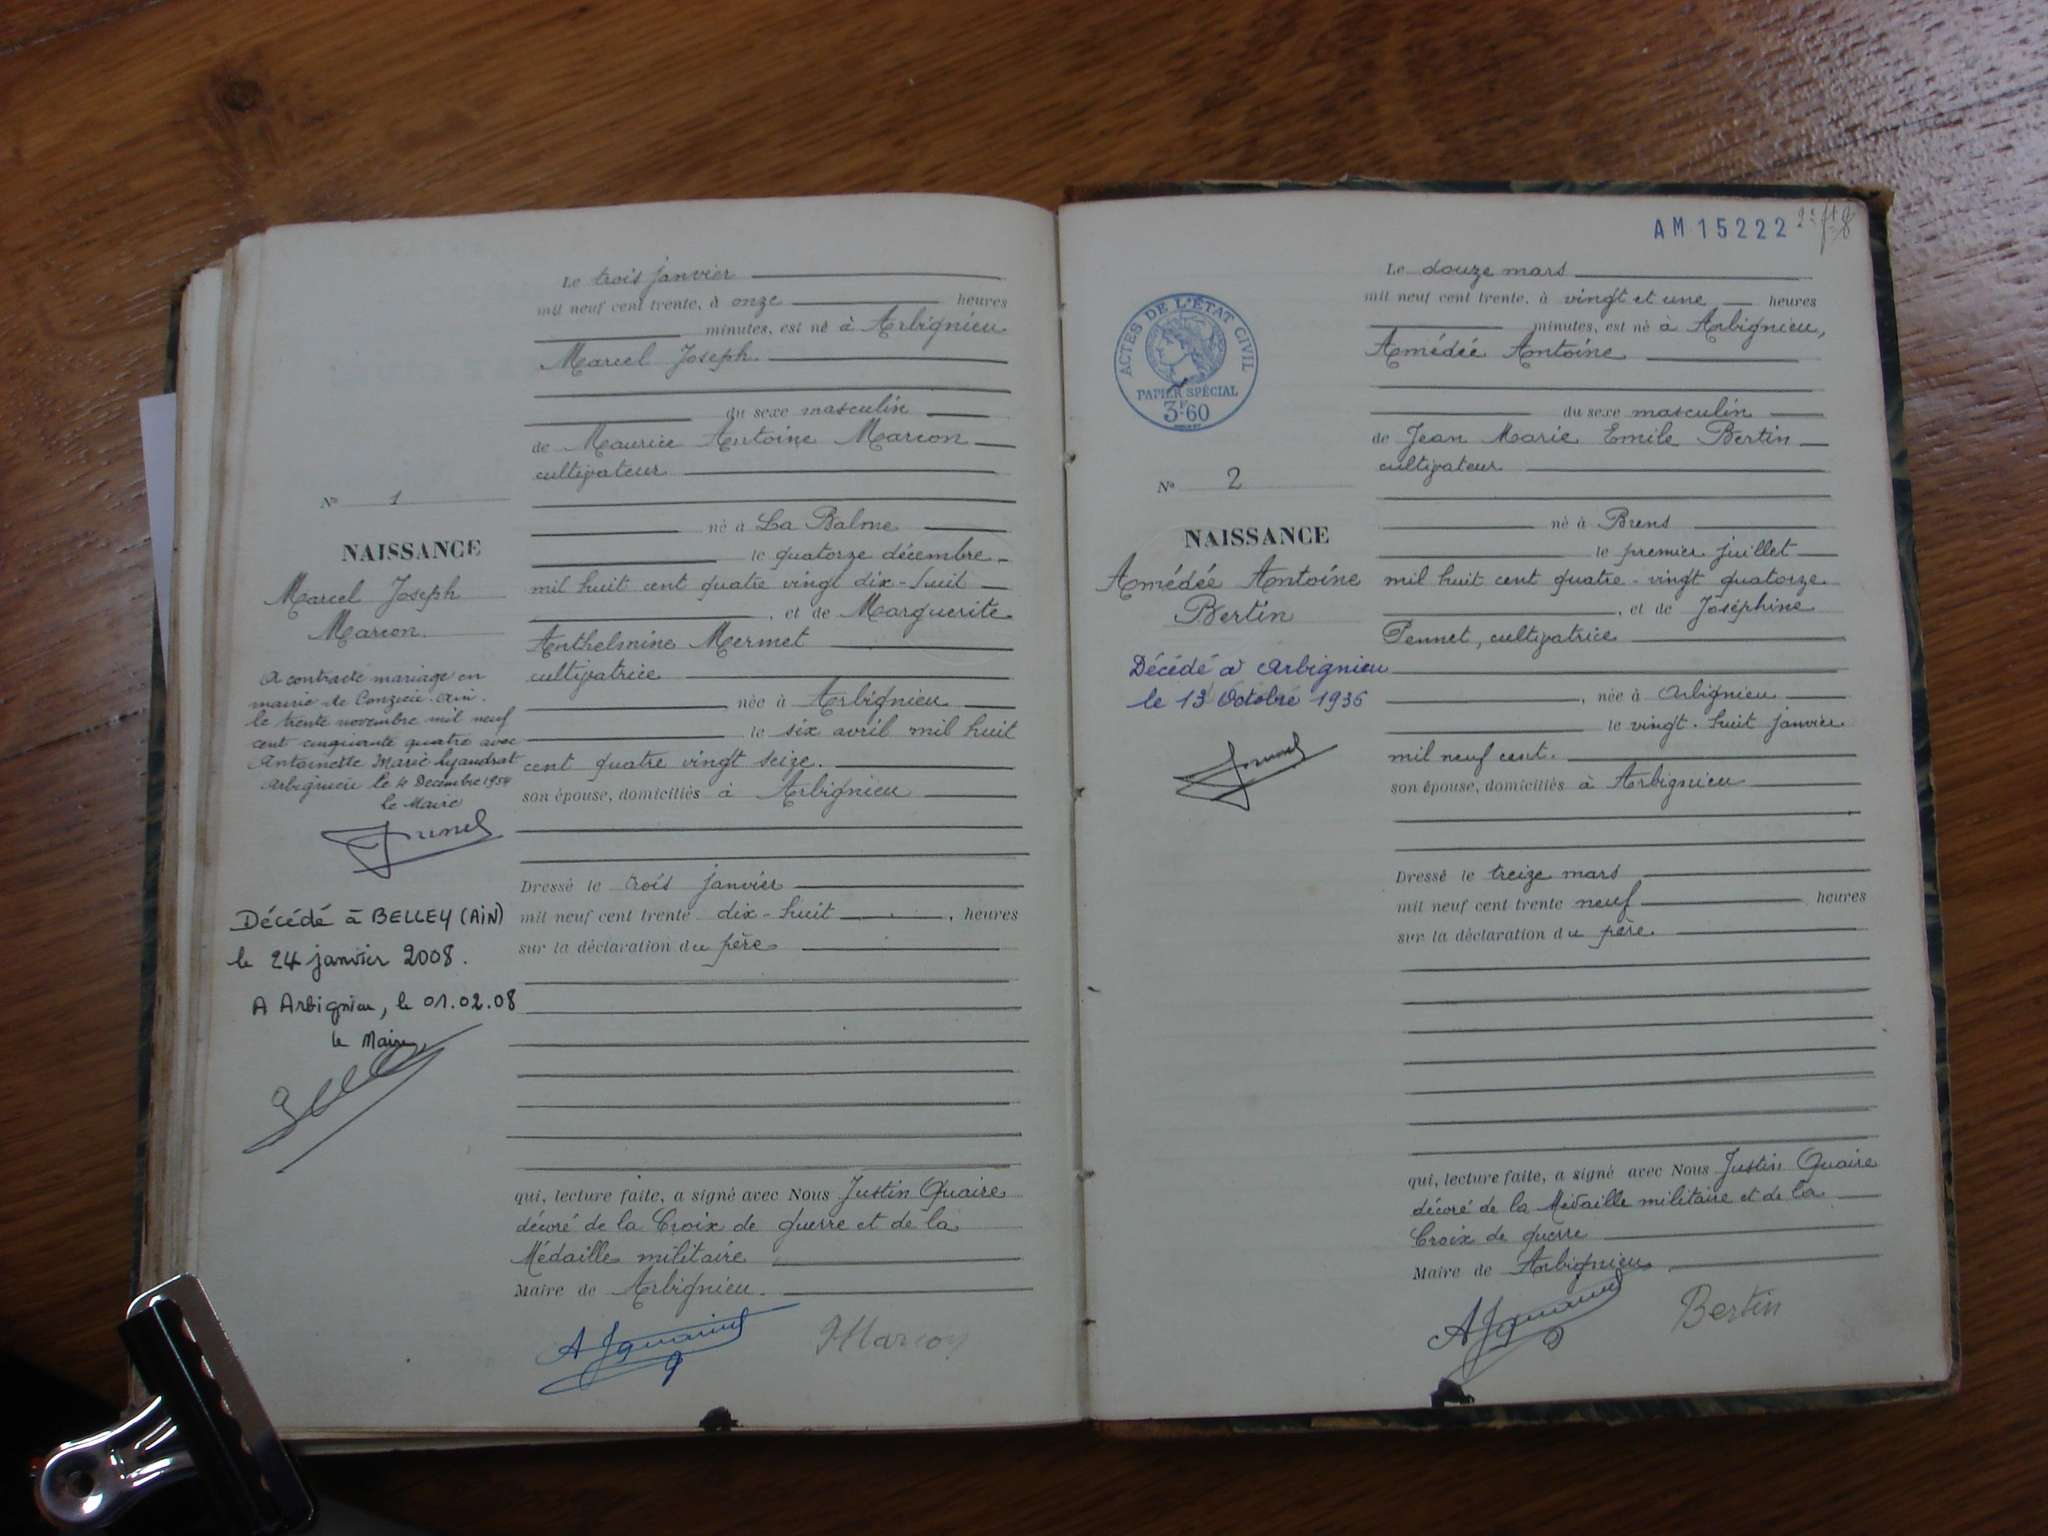 Le trois janvier
mil neuf cent trente, à onze heures
minutes, est né à Arbignieu
Marcel Joseph.
du sexe masculin
de Maurice Antoine Marcon
cultivateur
né à La Balme
le quatorze décembre
mil huit cent quatre vingt dix-huit
, et de Marguerite
Anthelmine Mermet
cultivatrice
née à Arbignieu
le six avril mil huit
cent quatre vingt seize.
son épouse, domiciliés à Arbignieu
Dressé le trois janvier
mil neuf cent trente dix-huit, heures
sur la déclaration du père
qui, lecture faite, a signé avec Nous Justin Quaire
décoré de la Croix de guerre et de la
Médaille militaire
Maire de Arbignieu.
Marcon
N° 1
NAISSANCE
Marcel Joseph
Marcon.
A contracté mariage en
mairie de Conzieu. Ain.
le trente novembre mil neuf
cent cinquante quatre avec
Antoinette Marie
Arbignieu le 4 Decembre 1954
le Maire
Décédé à BELLEY (AiN)
le 24 janvier 2008.
A Arbignieu, le 01.02.08
le Maire,
AM 15222
ACTES DE L'ÉTAT CIVIL
PAPIER SPÉCIAL
3F.60
Le douze mars
mil neuf cent trente, à vingt et une heures
minutes, est né à Arbignieu,
Amédée Antoine
du sexe masculin
de Jean Marie Emile Bertin
cultivateur
né à Brens
le premier juillet
mil huit cent quatre-vingt quatorze
, et de Joséphine
Pennet, cultivatrice
, née à Arbignieu
le vingt-huit janvier
mil neuf cent.
son épouse, domiciliés à Arbignieu
Dressé le treize mars
mil neuf cent trente neuf heures
sur la déclaration du père.
qui, lecture faite, a signé avec Nous Justin Quaire
décoré de la Médaille militaire et de la
Croix de guerre
Maire de Arbignieu
Bertin
N° 2
NAISSANCE
Amédée Antoine
Bertin
Décédé à Arbignieu
le 13 Octobre 1936